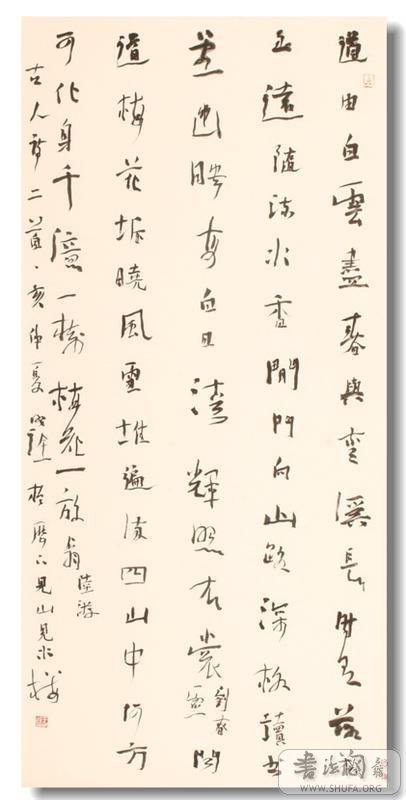 道由白雲盡春與青溪長時有落花
至遠隨流水香閒門向山路深柳讀書
堂幽映每白日清輝照衣裳 劉昚虛 聞
道梅花坼曉風雪堆遍滿四山中何方
可化身千億一樹梅花一放翁 陸游
古人詩二首 亥 夏 於 不見山見水樓
书法
WWW.SHUFA.ORG